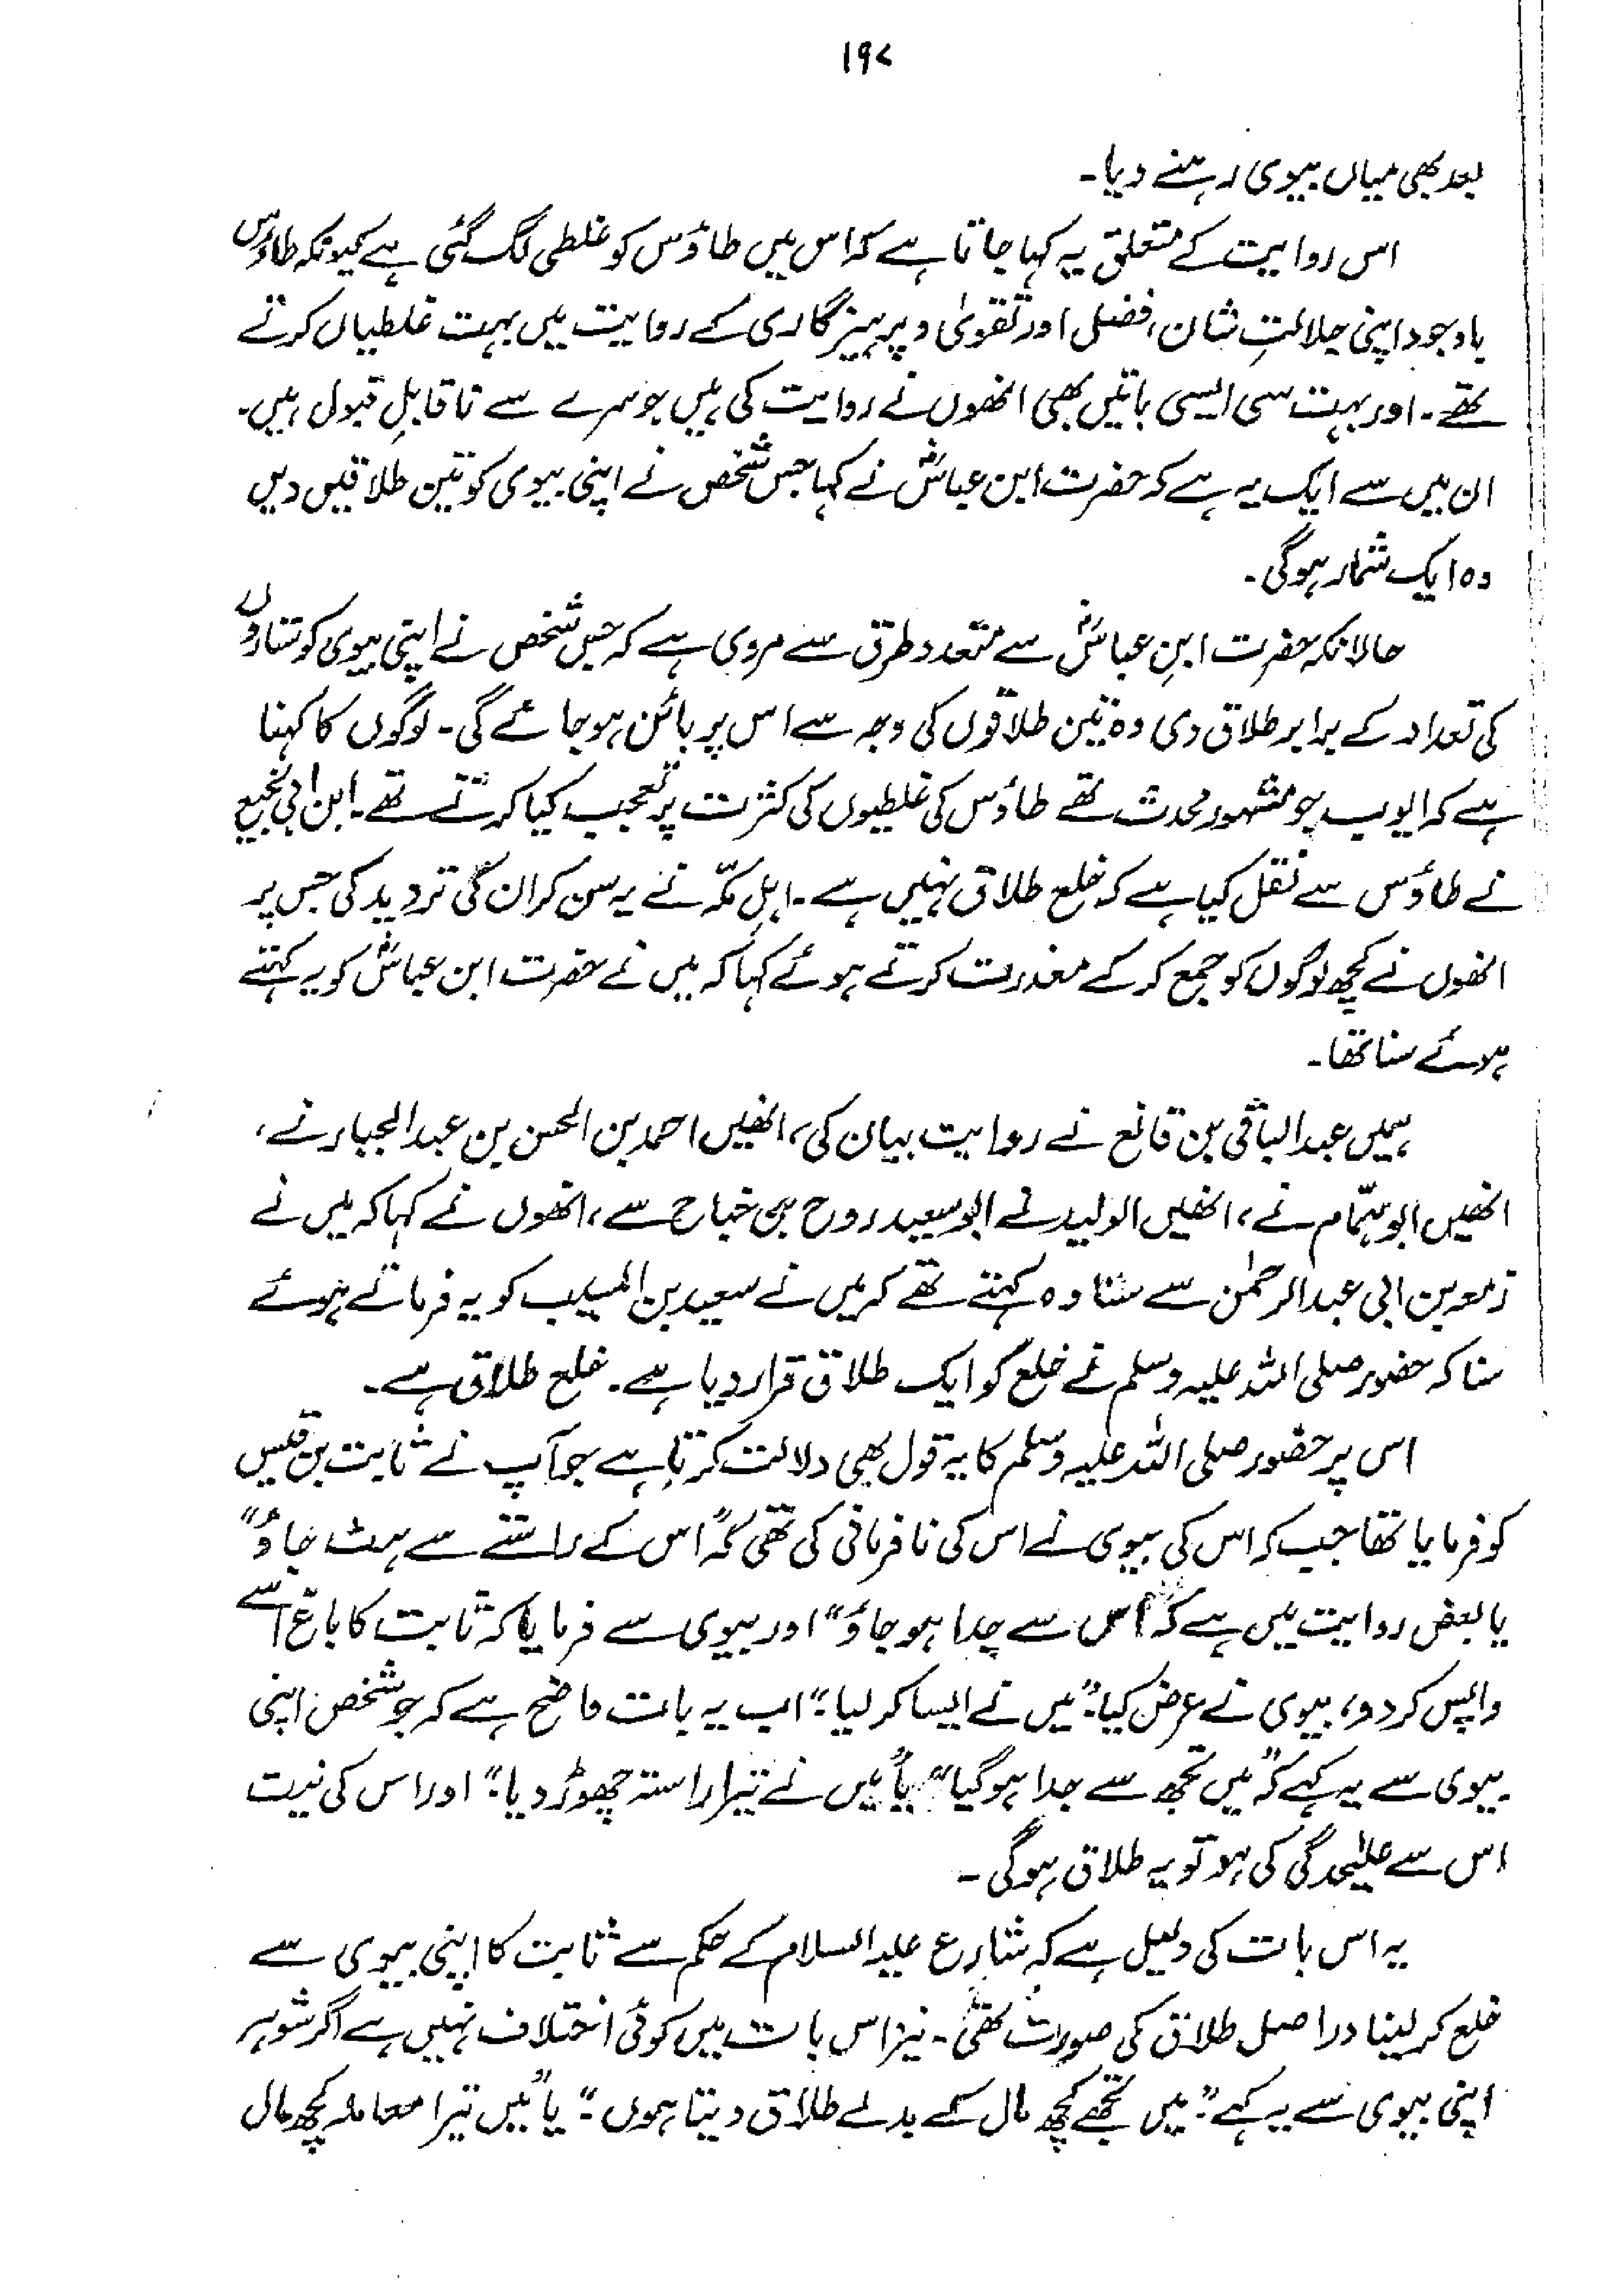 ۱۹۷
بعد بھی میاں بیوی رہنے دیا۔
اس روایت کے متعلق یہ کہا جاتا ہے کہ اس میں طاؤس کو غلطی لگ گئی ہے کیونکہ طاؤس
باوجود اپنی جلالتِ شان، فضل اور تقویٰ و پرہیزگاری کے روایت میں بہت غلطیاں کرتے
تھے۔ اور بہت سی ایسی باتیں بھی انھوں نے روایت کی ہیں جو سرے سے ناقابلِ قبول ہیں۔
ان میں سے ایک یہ ہے کہ حضرت ابن عباسؓ نے کہا جس شخص نے اپنی بیوی کو تین طلاقیں دیں
وہ ایک شمار ہوگی۔
حالانکہ حضرت ابنِ عباسؓ سے متعدد طرق سے مروی ہے کہ جس شخص نے اپنی بیوی کو ستاروں
کی تعداد کے برابر طلاق دی وہ تین طلاقوں کی وجہ سے اس پر بائن ہو جائے گی۔ لوگوں کا کہنا
ہے کہ ایوب جو مشہور محدث تھے طاؤس کی غلطیوں کی کثرت پر تعجب کیا کرتے تھے۔ ابن ابی نجیح
نے طاؤس سے نقل کیا ہے کہ خلع طلاق نہیں ہے۔ اہلِ مکّہ نے یہ سن کر ان کی تردید کی جس پر
انھوں نے کچھ لوگوں کو جمع کر کے معذرت کرتے ہوئے کہا کہ میں نے حضرت ابن عباسؓ کو یہ کہتے
ہوئے سنا تھا۔
ہمیں عبدالباقی بن قانع نے روایت بیان کی، انھیں احمد بن الحسن بن عبدالجبار نے،
انھیں ابو ہمّام نے، انھیں الولید نے ابو سعید روح بن جناح سے، انھوں نے کہا کہ میں نے
زمعہ بن ابی عبدالرحمٰن سے سنا وہ کہتے تھے کہ میں نے سعید بن المسیب کو یہ فرماتے ہوئے
سنا کہ حضور صلی اللہ علیہ وسلم نے خلع کو ایک طلاق قرار دیا ہے۔ خلع طلاق ہے۔
اس پر حضور صلی اللہ علیہ وسلم کا یہ قول بھی دلالت کرتا ہے جو آپ نے ثابت بن قیس
کو فرمایا تھا جب کہ اس کی بیوی نے اس کی نافرمانی کی تھی کہ "اس کے راستے سے ہٹ جاؤ"
یا بعض روایت میں ہے کہ "اس سے جدا ہو جاؤ" اور بیوی سے فرمایا کہ ثابت کا باغ اسے
واپس کر دو، بیوی نے عرض کیا: "میں نے ایسا کر لیا۔" اب یہ بات واضح ہے کہ جو شخص اپنی
بیوی سے یہ کہے کہ "میں تجھ سے جدا ہو گیا" یا "میں نے تیرا راستہ چھوڑ دیا۔" اور اس کی نیت
اس سے علیٰحدگی کی ہو تو یہ طلاق ہوگی۔
یہ اس بات کی دلیل ہے کہ شارع علیہ السلام کے حکم سے ثابت کا اپنی بیوی سے
خلع کر لینا دراصل طلاق کی صورت تھی۔ نیز اس بات میں کوئی اختلاف نہیں ہے اگر شوہر
اپنی بیوی سے یہ کہے: "میں تجھے کچھ مال کے بدلے طلاق دیتا ہوں۔" یا "میں تیرا معاملہ کچھ مال